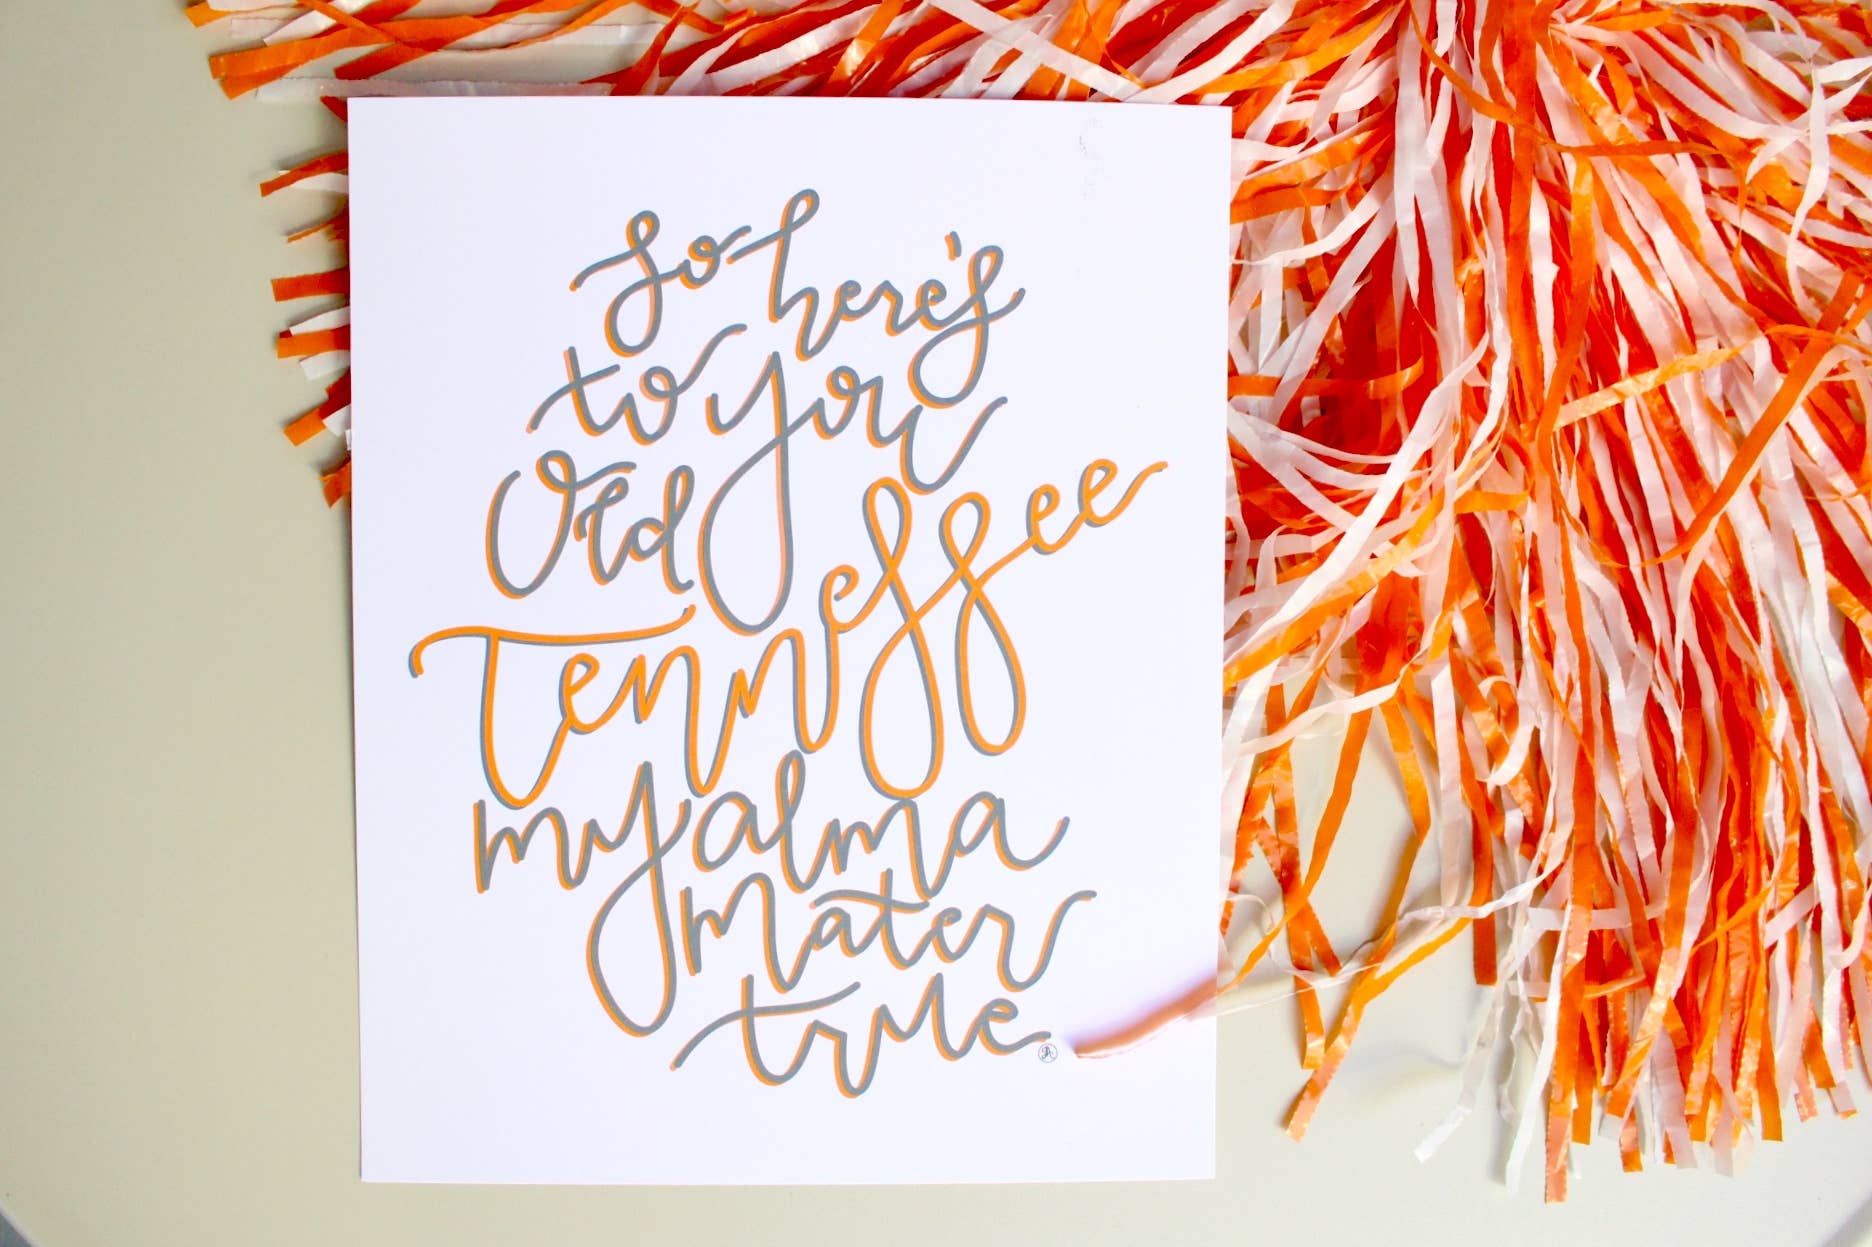 So here's
to you
Old
Tennessee
my alma
Mater
true.